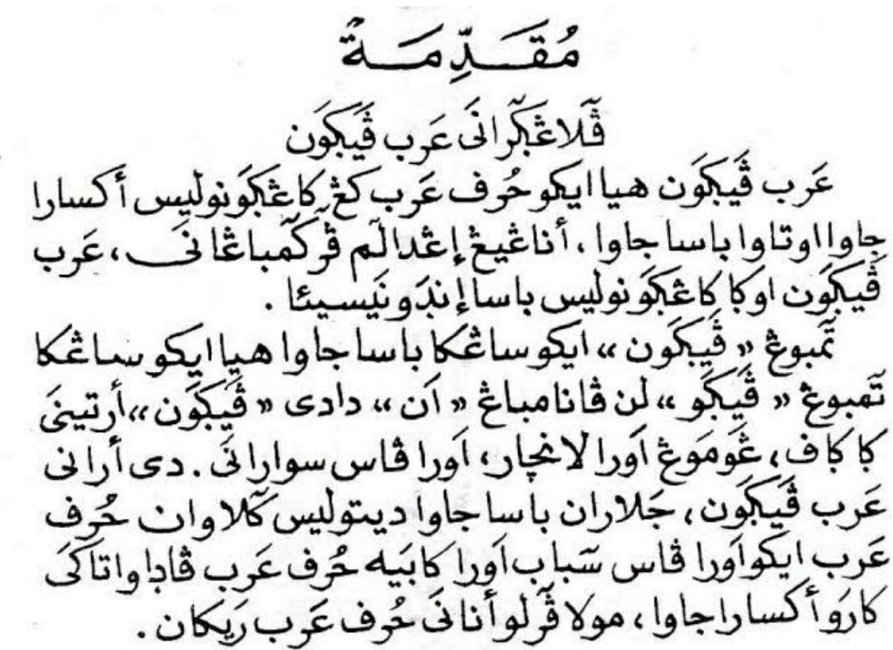 مُقَدِّمَةٌ
ڤٓلاڠݢٓرانَى عَرب ڤَيݢَون
عَرب ڤَيݢَون هيا ايكو حُرف عَرب كڠ كاڠݢَو نوليس أكسارا
جاوا اوتاوا باسا جاوا، أناڠيڠ إڠدالٓم ڤٓركٓمباڠانَى، عَرب
ڤَيݢَون اوݢا كاڠݢَو نوليس باسا إندَونَيسيئا.
تٓمبوڠ «ڤَيݢَون» ايكو ساڠكا باسا جاوا هيا ايكو ساڠكا
تٓمبوڠ «ڤَيݢَو» لن ڤانامباڠ «اَن» دادى «ڤَيݢَون» أرتينَى
ݢاݢاف، ڠَومَوڠ اَورا لانچار، اَورا ڤاس سوارانَى. دى أرانى
عَرب ڤَيݢَون، جَلاران باسا جاوا ديتوليس كٓلاوان حُرف
عَرب ايكو اَورا ڤاس سٓباب اَورا كابَيه حُرف عَرب ڤاڊا واتاكَى
كارَو أكسارا جاوا، مولا ڤٓرلو أنانَى حُرف عَرب رَيكان.